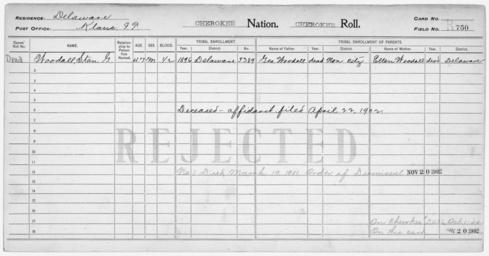 RESIDENCE: Delaware
POST OFFICE: Klaus I.T.
CHEROKEE Nation. CHEROKEE Roll.
CARD No.
FIELD No. R 750
Dawes' Roll No. NAME. Relationship to Person First Named. AGE. SEX. BLOOD. TRIBAL ENROLLMENT Year. District. No. TRIBAL ENROLLMENT OF PARENTS Name of Father. Year. District. Name of Mother. Year. District.
Dead 1 Woodall, Stan G. 47 M 1/2 1896 Delaware 3389 Geo Woodall dead Non city Ellen Woodall dead Delaware
2
3
4
5
6 Deceased - affidavit filed April 22, 1902.
7
8
9
REJECTED
10
11
12 No 1 Died March 19 Order of Dismissal NOV 20 1902
13
14
15
16 On Cherokee
17 On this card 20 1902